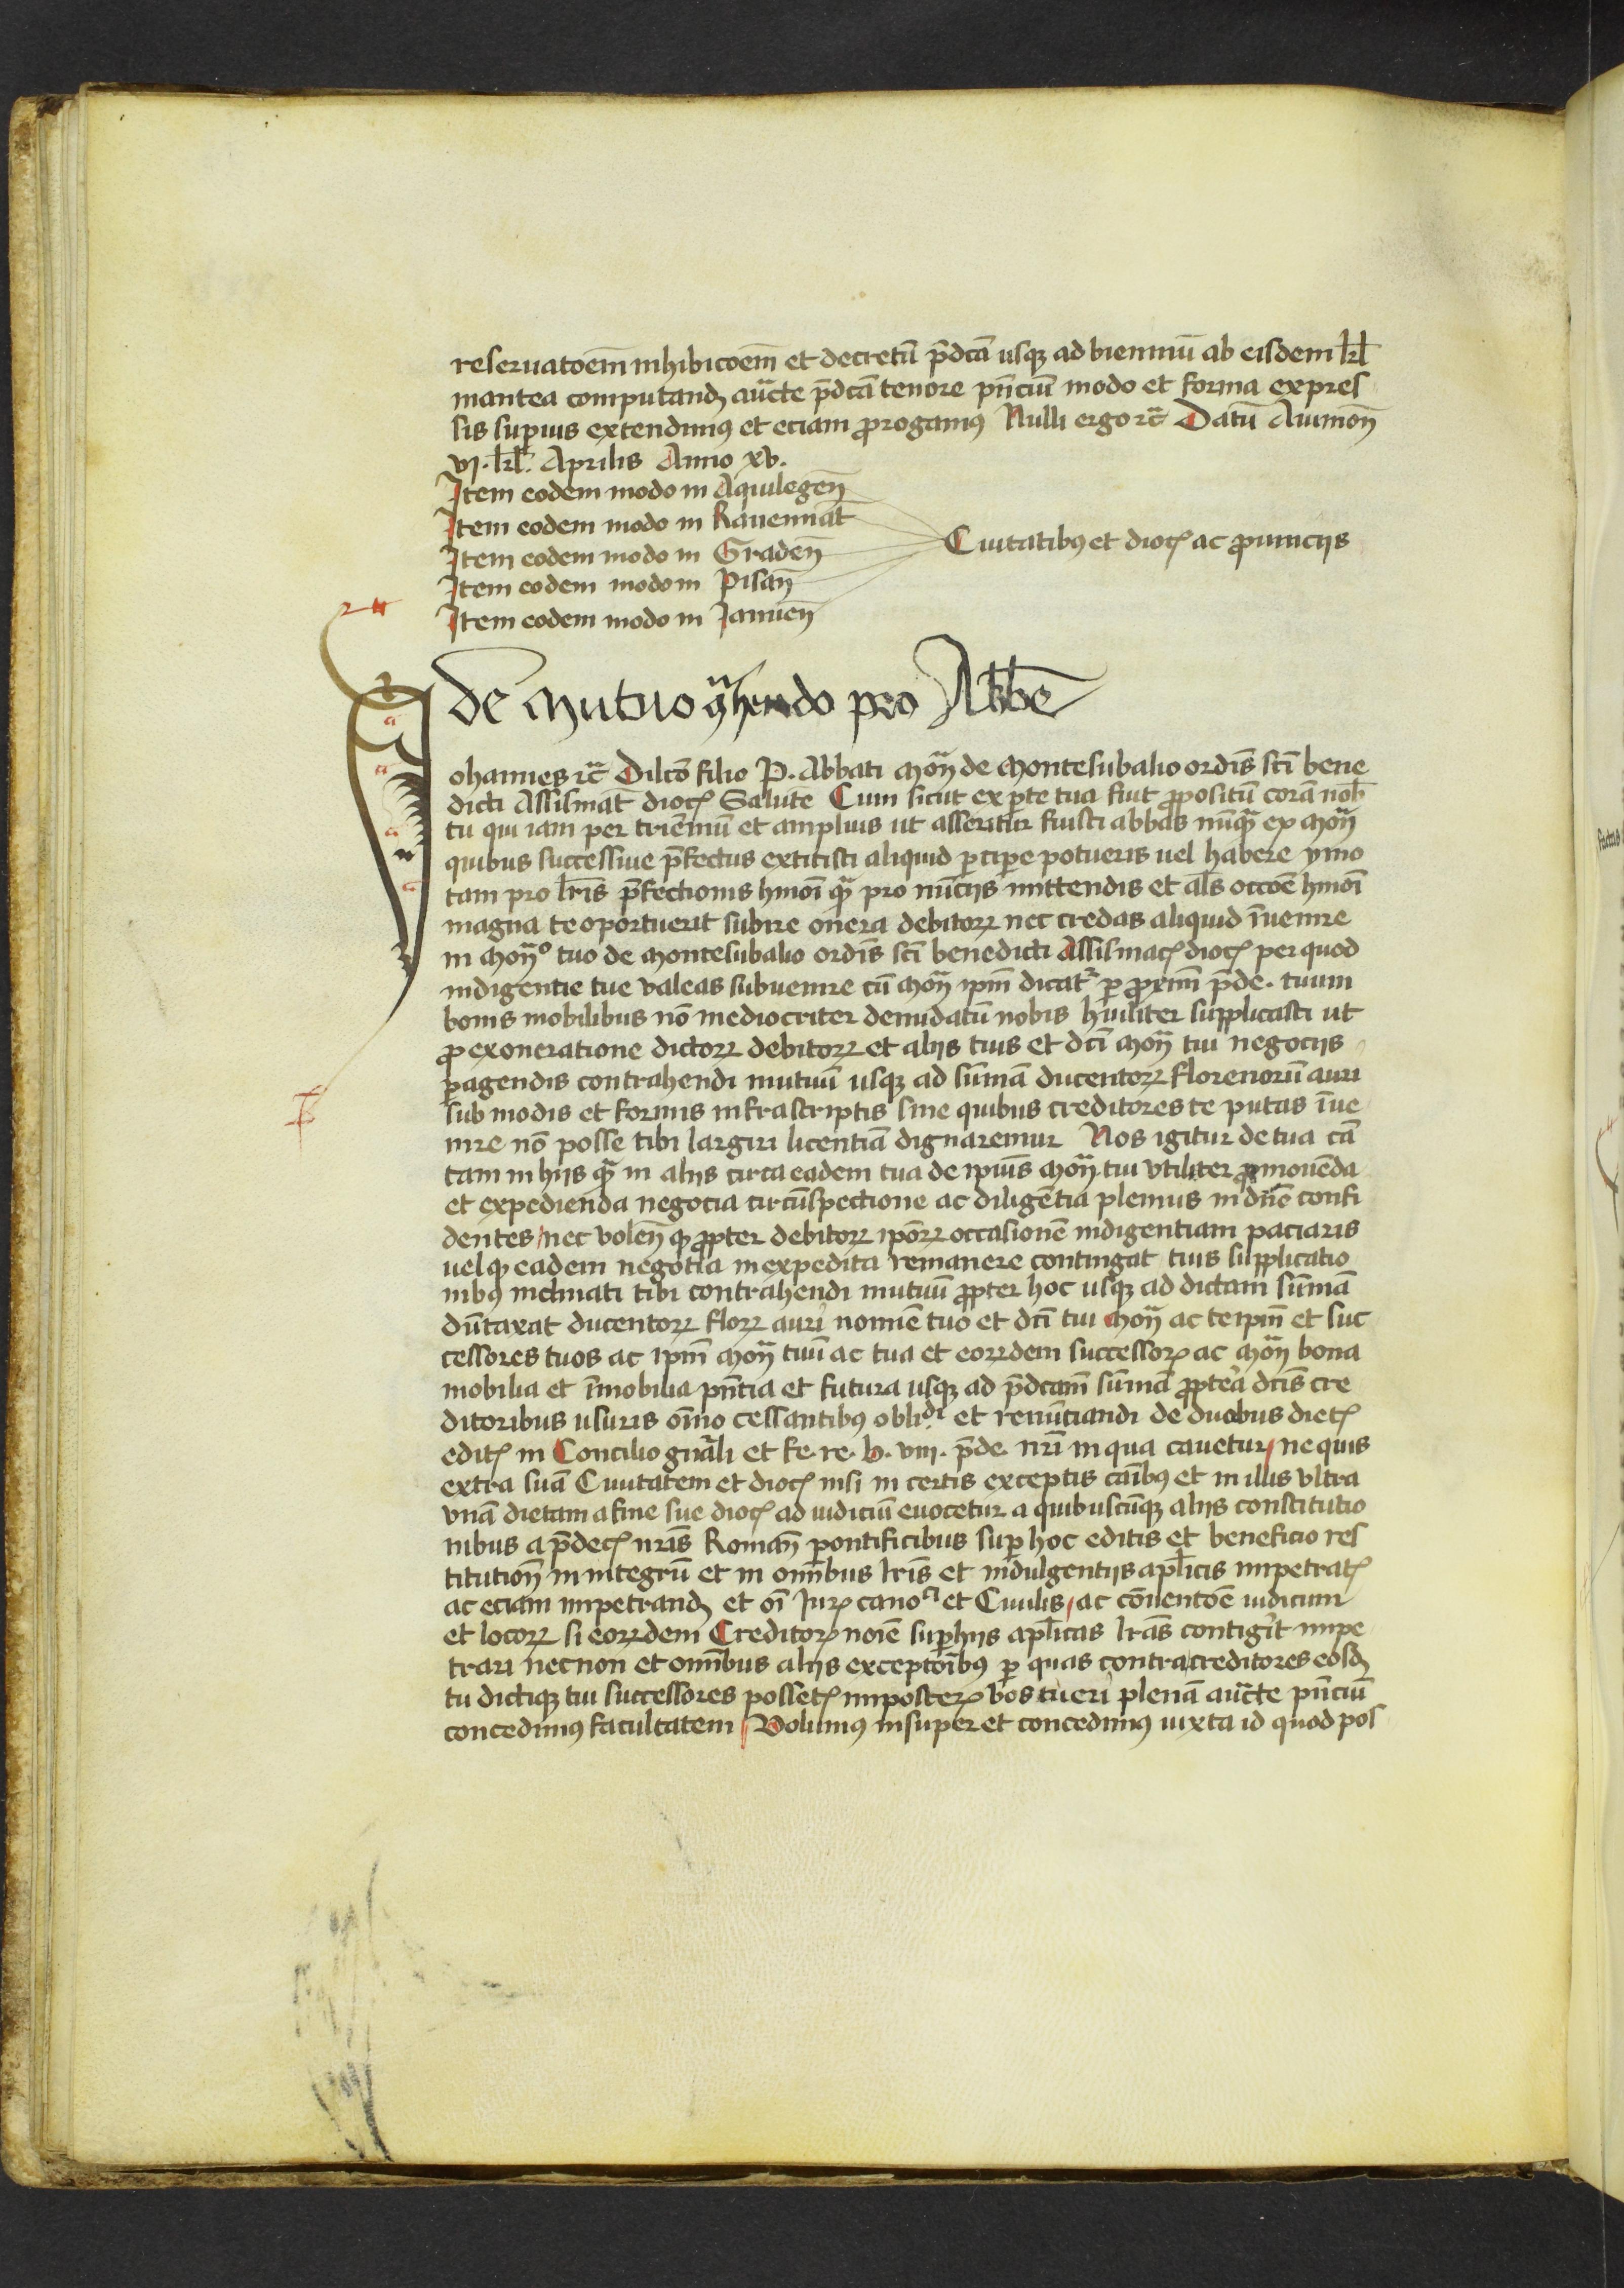 reseruatoem̄ inhibicoem̄ et decretū p̄dcā usqꝫ ad bienniū ab eisdem kl̄
inantea computand̛ auc̄te p̄dcā tenore pn̄ciū modo et forma expres
sis supius extendimꝰ et eciam ꝓrogamꝰ Nulli ergo ꝛc̄ Datū Auinion̄
vj. kl̄. Aprilis Anno xv.
Item eodem modo in Aquilegen̄
Item eodem modo in Rauennat̄
Item eodem modo in Graden̄
Item eodem modo in Pisan̄
Item eodem modo in Januen̄
Ciuitatibꝰ et dioc̛ ac ꝓuincijs
de mutuo ꝯͣhendo pro Abbe
Iohannes ꝛc̄ Dilc̄o filio P. Abbati Moͣn̄ de Montesubasio ordīs sc̄i bene
dicti Assisinat̄ dioc̛ Salutē Cum sicut ex ꝑte tua fuit ꝓpositū corā nob̄
tu qui iam per trienniū et amplius ut asseritur fuisti abbas nūqͣ ex Moͣn̄
quibus successiue p̄fectus extitisti aliquid ꝑciꝑe potueris uel habere ymo
tam pro lr̄is p̄fectionis hmoī qͣ pro nūcijs mittendis et al̄s occōe hmoī
magna te oportuerit subire onera debitoꝝ nec credas aliquid īuenire
in Moͣn̄º tuo de Montesubasio ordīs sc̄i benedicti Assisinac̛ dioc̛ per quod
indigentie tue valeas subuenire cū Moͣn̄ ipm̄ dicatᷣ ꝑ ꝓximū p̄de. tuum
bonis mobilibus nō mediocriter denudatū nobis hūiliter supplicasti ut
ꝓ exoneratione dictoꝝ debitoꝝ et alijs tuis et dc̄i Moͣn̄ tui negocijs
ꝑagendis contrahendi mutuū usqꝫ ad sūmā ducentoꝝ florenorū auri
sub modis et formis infrascriptis sine quibus creditores te putas īue
nire nō posse tibi largiri licentiā dignaremur Nos igitur de tua cā
tam in hijs qͣ in alijs circa eadem tua de ipius Moͣn̄ tui vtiliter ꝓmouēda
et expedienda negocia circūspectione ac diligētia plenius in dn̄o confi
dentes nec volen̄ qꝫ ꝓpter debitoꝝ ipōꝝ occasionē indigentiam paciaris
uel qꝫ eadem negotia inexpedita remanere contingat tuis supplicatio
nibꝰ inclinati tibi contrahendi mutuū ꝓpter hoc usqꝫ ad dictam sūmā
dūtaxat ducentoꝝ floꝝ auri nomīe tuo et dc̄i tui Moͣn̄ ac te ipm̄ et suc
cessores tuos ac ipm̄ Moͣn̄ tuū ac tua et eoꝝdem successoꝝ ac Moͣn̄ bona
mobilia et īmobilia pn̄tia et futura usqꝫ ad p̄dcam̄ sūmā ꝓpterà dc̄is cre
ditoribus usuris om̄o cessantibꝰ obli.di et renūciandi de duabus diet̛
edit̛ in Concilio gn̄ali et fe. re. b. viij. p̄de. nr̄i in qua cauetur ne quis
extra suā Ciuitatem et dioc̛ nisi in certis exceptis casībꝰ et in illis vltra
vnā dietam a fine sue dioc̛ ad iudiciū euocetur a quibuscūqꝫ alijs constitutio
nibus a p̄dec̛ nr̄is Roman̄ pontificibus suꝑ hoc editis et beneficio res
titution̄ in integrū et in om̄ibus lr̄is et indulgentijs ap̄licis impetrat̛
ac eciam impetrand̛ et oī Juꝝ canoᶜⁱ et Ciuilis ac cōuentōe iudicum
et locoꝝ si eoꝝdem Creditoꝝ noīe suꝑ hijs ap̄licas lr̄as contigīt impe
trari necnon et om̄ibus alijs exceptōibꝰ ꝑ quas contra creditores eosd̛
tu dictiqꝫ tui successores posset̛ imposteꝝ vos tueri plenā auc̄te pn̄ciū
concedimꝰ facultatem Volumꝰ insuper et concedimꝰ iuxta id quod pos